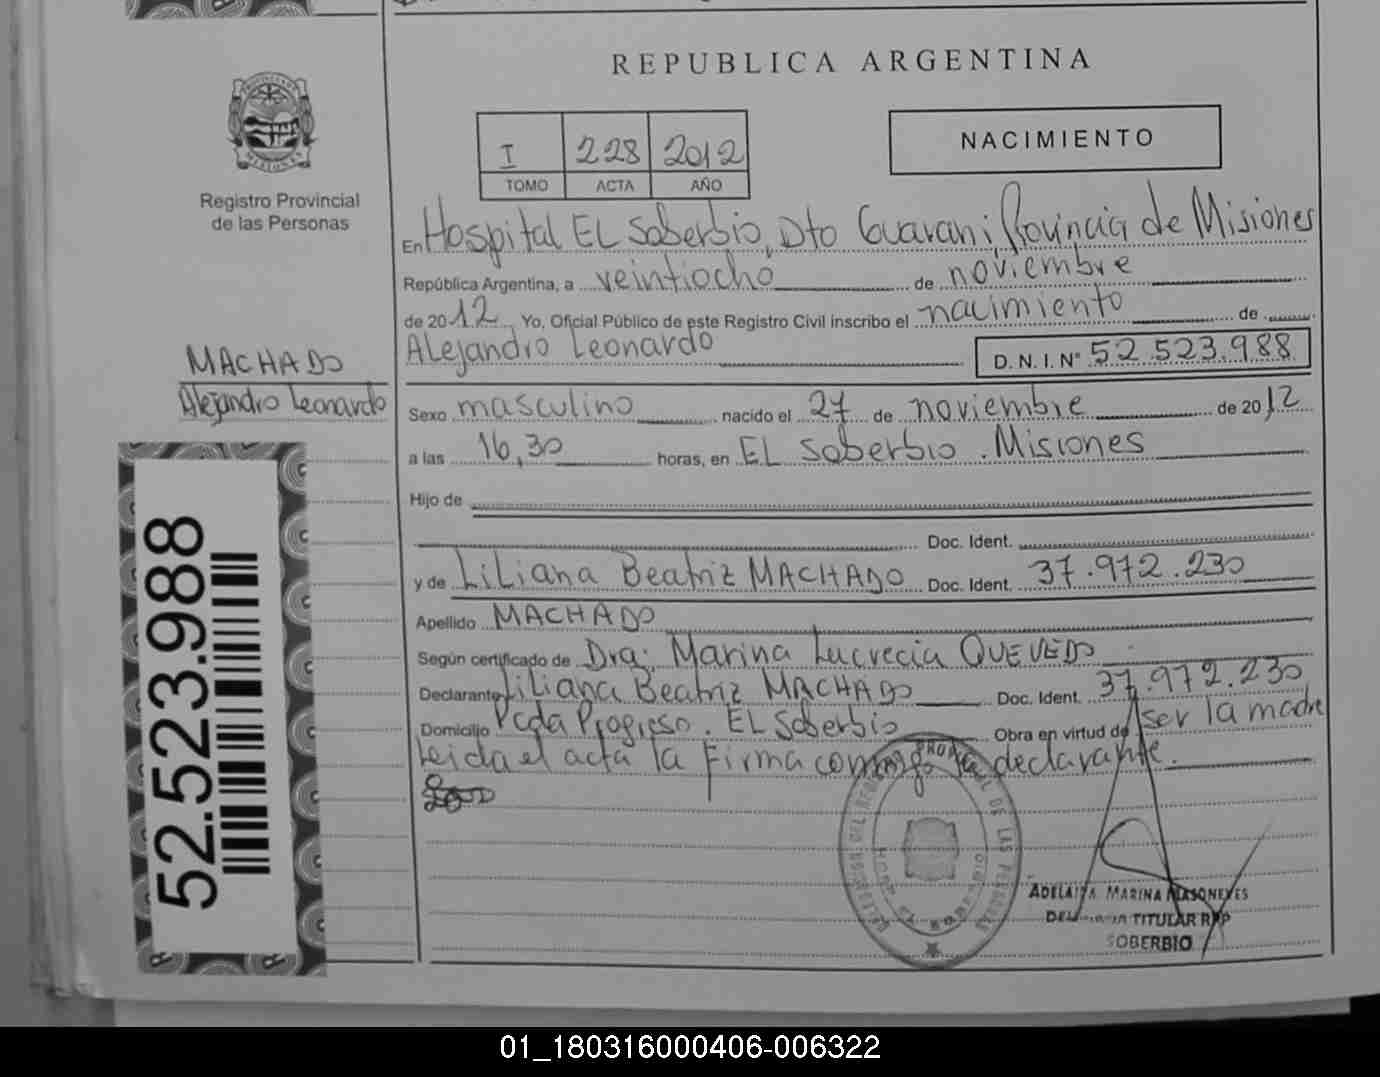 REPUBLICA ARGENTINA
PROVINCIA DE
MISIONES
Registro Provincial
de las Personas
I 228 2012
TOMO ACTA AÑO
NACIMIENTO
En Hospital EL Soberbio, Dto Guarani, Provincia de Misiones
República Argentina, a veintiocho de noviembre
de 2012 Yo, Oficial Público de este Registro Civil inscribo el nacimiento de
Alejandro Leonardo D.N.I. Nº 52.523.988
MACHADO
Alejandro Leonardo
Sexo masculino nacido el 27 de noviembre de 2012
a las 16,30 horas, en EL Soberbio. Misiones
Hijo de
Doc. Ident.
y de Liliana Beatriz MACHADO Doc. Ident. 37.972.230
Apellido MACHADO
Según certificado de Dra: Marina Lucrecia QUEVEDO
Declarante Liliana Beatriz MACHADO Doc. Ident. 37.972.230
Domicilio Pcda Progreso. EL Soberbio Obra en virtud de ser la madre
Leida el acta la Firma conmigo la declarante.
52.523.988
DELEGACION DEL REGISTRO PROVINCIAL DE LAS PERSONAS
EL SOBERBIO
ADELAIDA MARINA
TITULAR RPP
SOBERBIO
01_180316000406-006322